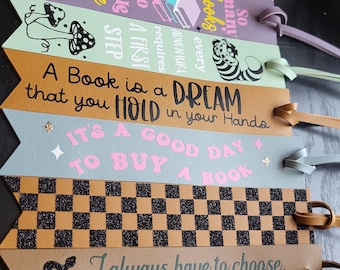 So
many
books
every
ADVENTURE
requires
A FIRST
STEP
A Book is a DREAM
that you HOLD in your Hands
IT'S A GOOD DAY
TO BUY A BOOK
I always have to choose